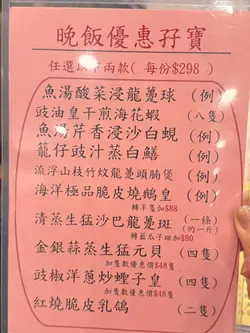 晚飯優惠孖寶
任選以下兩款(每份$298)
魚湯酸菜浸龍躉球(例)
豉油皇干煎海花蝦(八隻)
魚湯芹香浸沙白蜆(例)
籠仔豉汁蒸白鱔(例)
流浮山枝竹炆龍躉頭腩煲
海洋極品脆皮燒鵝皇(例)
轉半隻加$88
清蒸生猛沙巴龍躉斑(一條)
轉藍瓜子斑加$90(約一斤)
金銀蒜蒸生猛元貝(四隻)
加隻數優惠價$48隻
豉椒洋蔥炒蟶子皇(四隻)
加隻數優惠價$48隻
紅燒脆皮乳鴿(二隻)